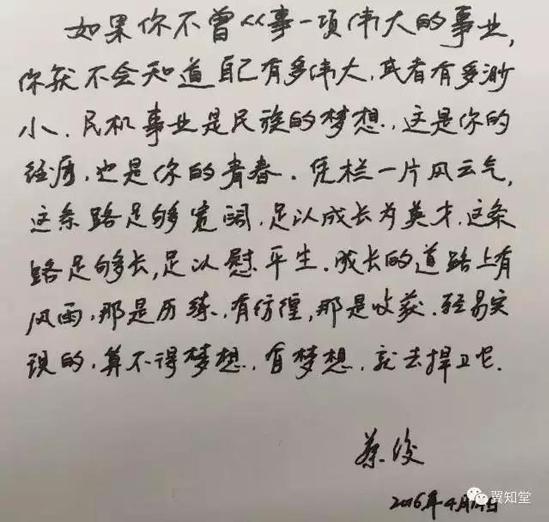 如果你不曾从事一项伟大的事业,
你就不会知道自己有多伟大,或者有多渺
小.民机事业是民族的梦想.这是你的
经历,也是你的青春.凭栏一片风云气,
这条路足够宽阔,足以成长为英才.这条
路足够长,足以慰平生.成长的道路上有
风雨,那是历练,有彷徨,那是收获.轻易实
现的,算不得梦想.有梦想,就去捍卫它.
蔡俊
2016年4月14日
翼知堂